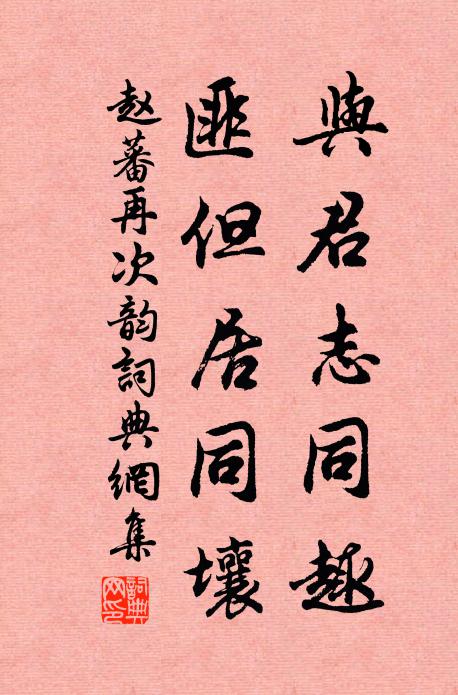 與君志同趣
匪但居同壤
赵蕃再次韵詞典網集
詞典网印